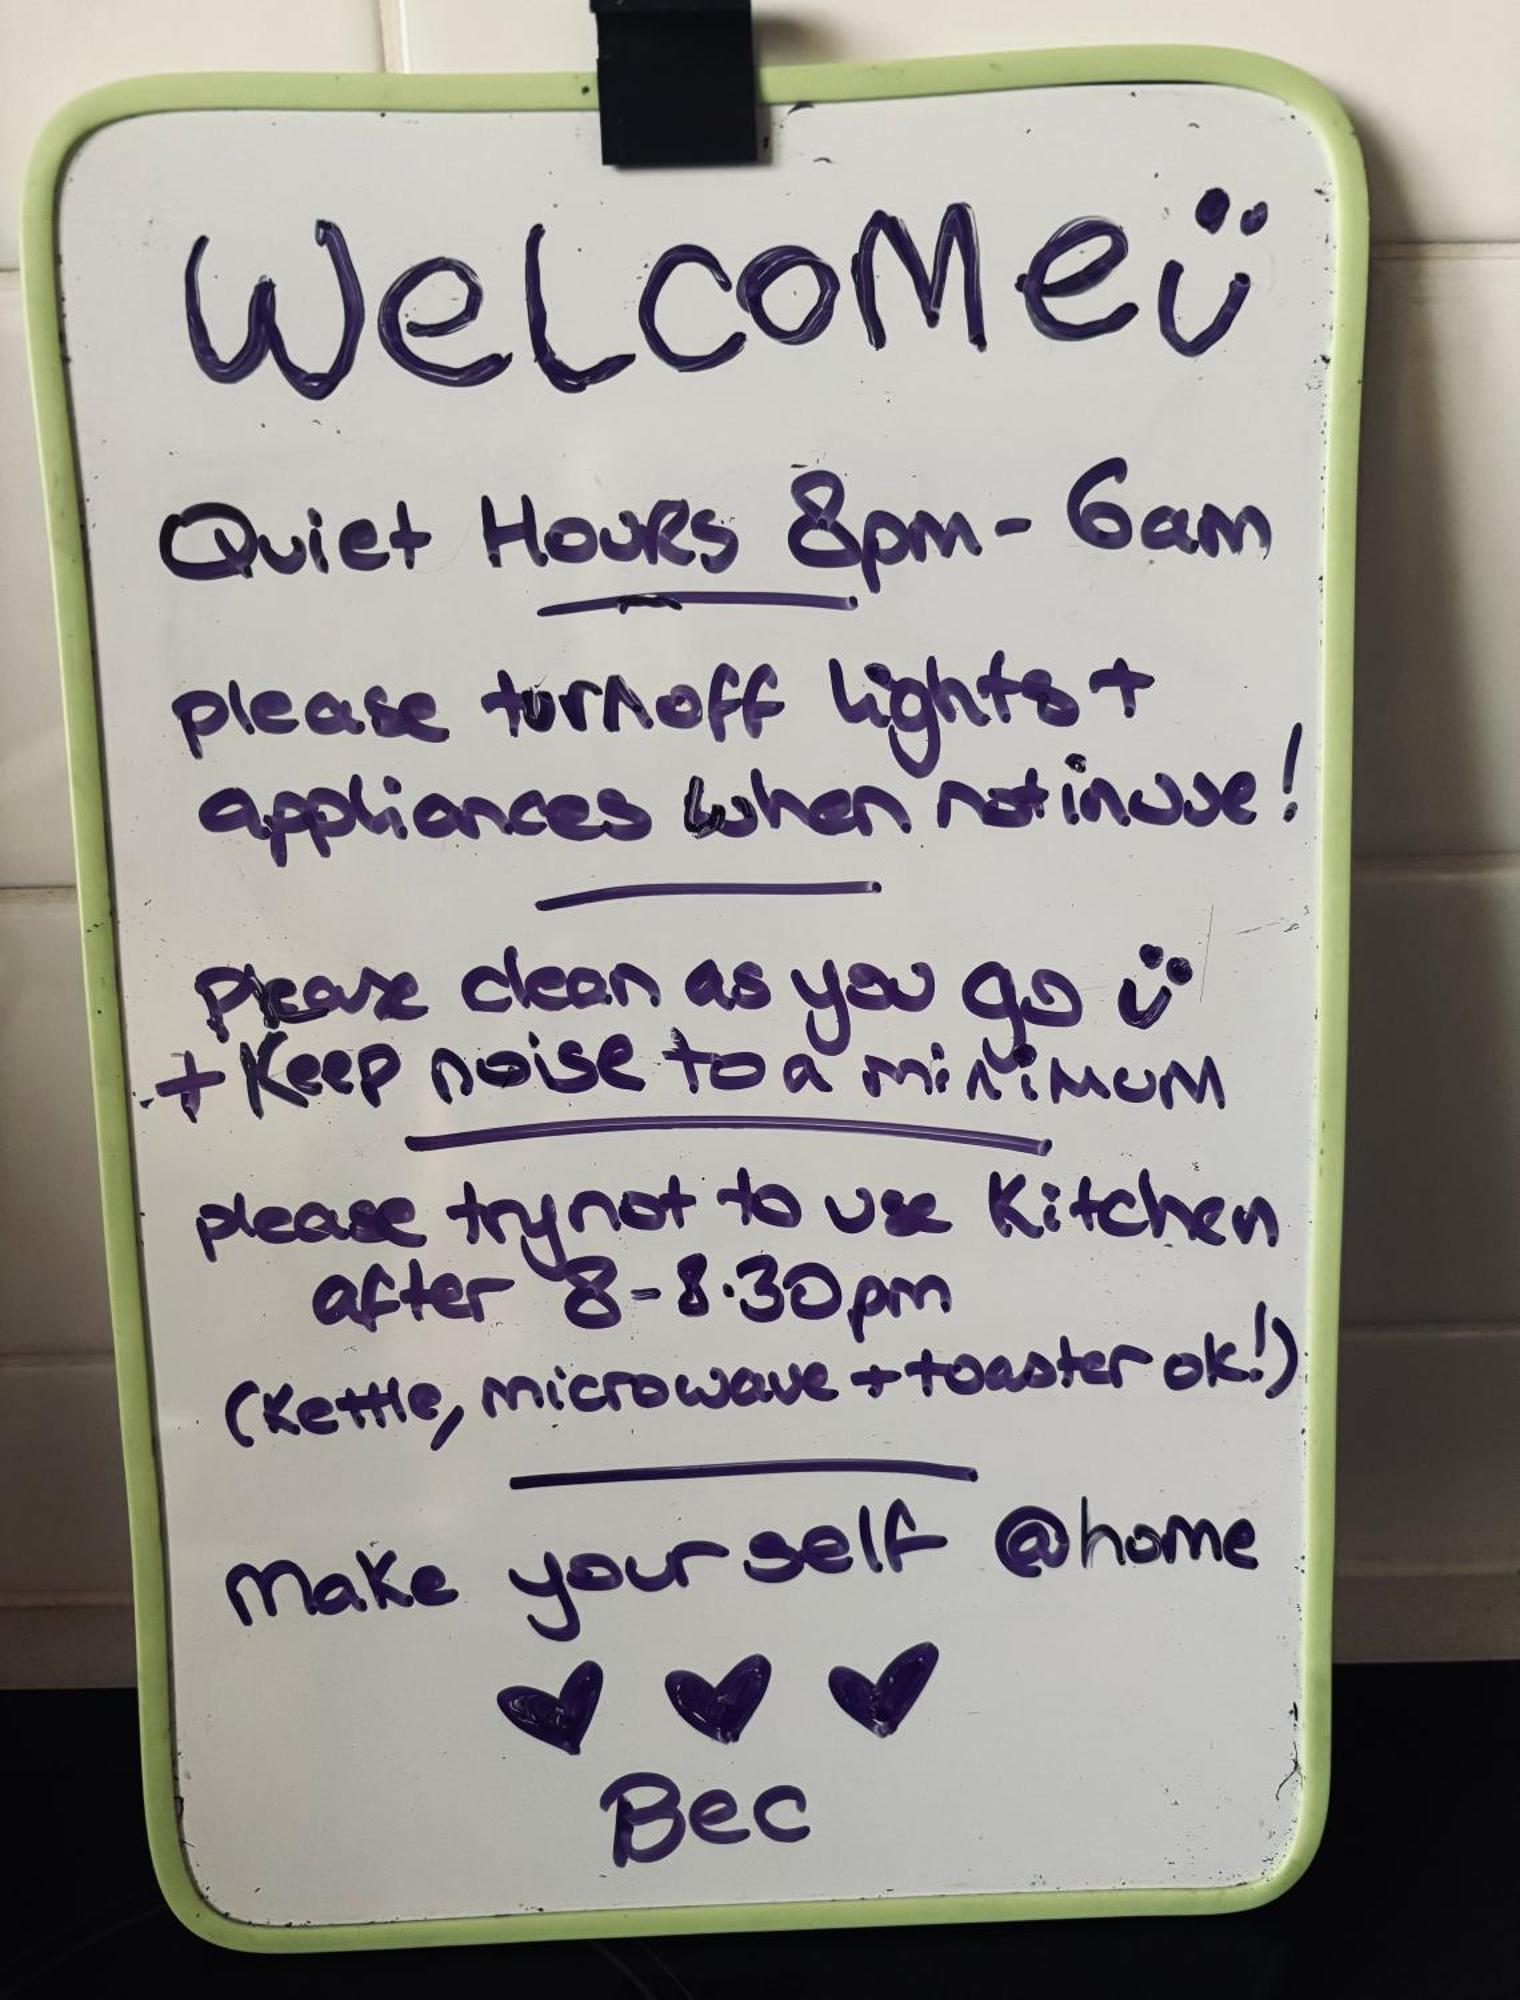 WeLcoMe ü
Quiet Hours 8pm - 6am
please turn off lights +
appliances when not in use!
please clean as you go ü
+ Keep noise to a minimum
please try not to use Kitchen
after 8-8.30pm
(Kettle, microwave + toaster ok!)
Make yourself @home
♥ ♥ ♥
Bec